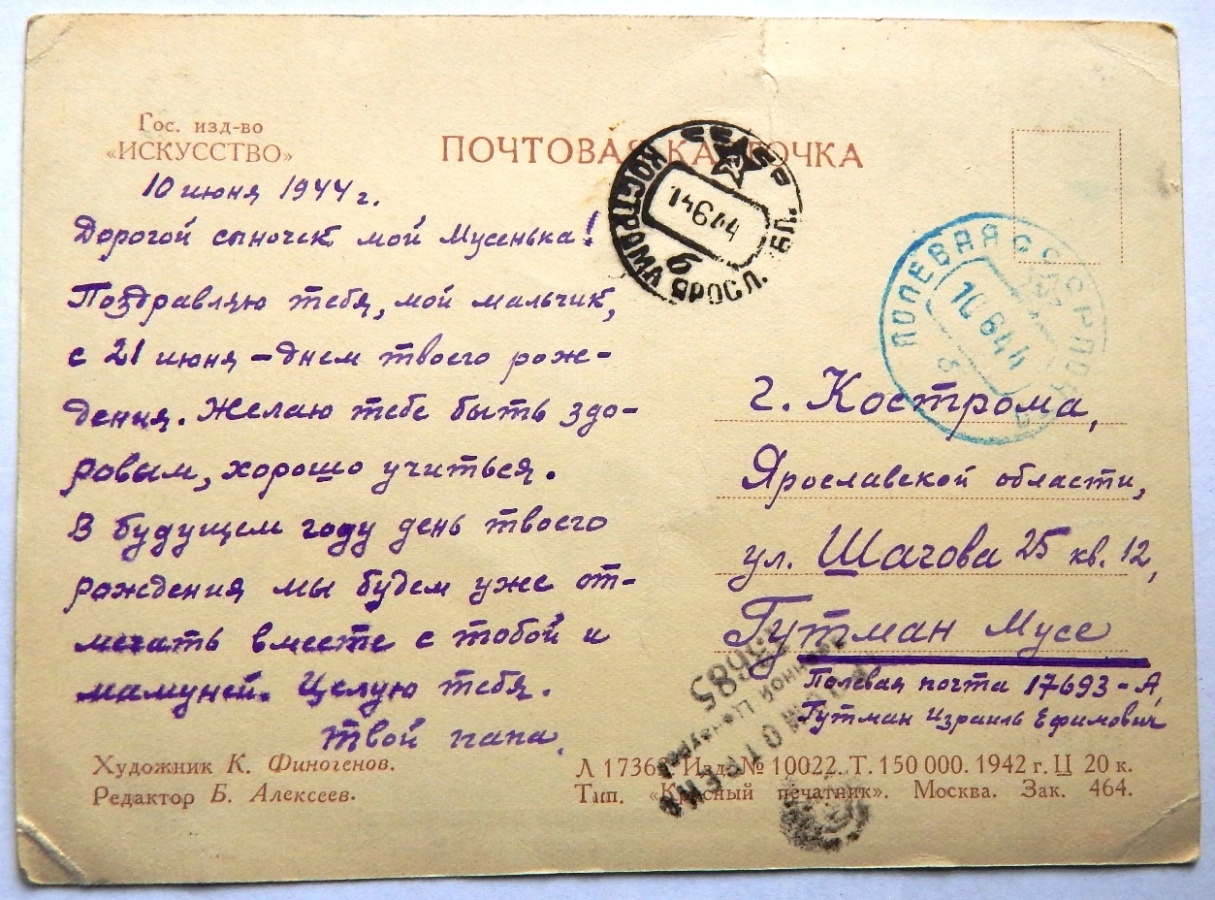 Гос. изд-во
«ИСКУССТВО»
ПОЧТОВАЯ КАРТОЧКА
10 июня 1944 г.
Дорогой сыночек мой Мусенька!
Поздравляю тебя, мой мальчик,
с 21 июня – днем твоего рож-
дения. Желаю тебе быть здо-
ровым, хорошо учиться.
В будущем году день твоего
рождения мы будем уже от-
мечать вместе с тобой и
мамуней. Целую тебя.
Твой папа.
СССР
КОСТРОМА ЯРОСЛ. ОБЛ.
14644
б
ПОЛЕВАЯ
СССР
10 6 44
г. Кострома,
Ярославской области,
ул. Шагова 25 кв. 12,
Гутман Мусе
Полевая почта 17693-А,
Гутман Израиль Ефимович
ПРОСМОТРЕНО
Военной Цензурой
Художник К. Финогенов.
Редактор Б. Алексеев.
Изд. № 10022. Т. 150 000. 1942 г. Ц 20 к.
Тип. «Красный печатник». Москва. Зак. 464.